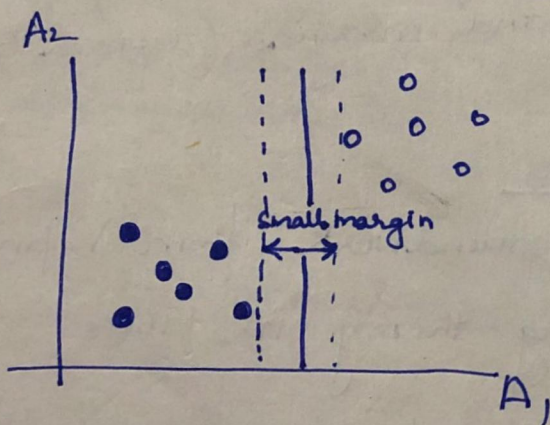 A2
small margin
A1